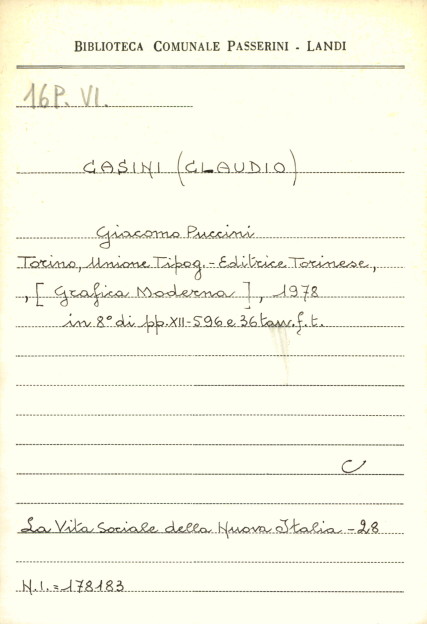 BIBLIOTECA COMUNALE PASSERINI - LANDI
16P. VI.
CASINI (CLAUDIO)
Giacomo Puccini
Torino, Unione Tipog.-Editrice Torinese,
, [ Grafica Moderna ], 1978
in 8° di pp. XII-596 e 36 tavv. f. t.
C
La Vita Sociale della Nuova Italia - 28
N.I. = 178183